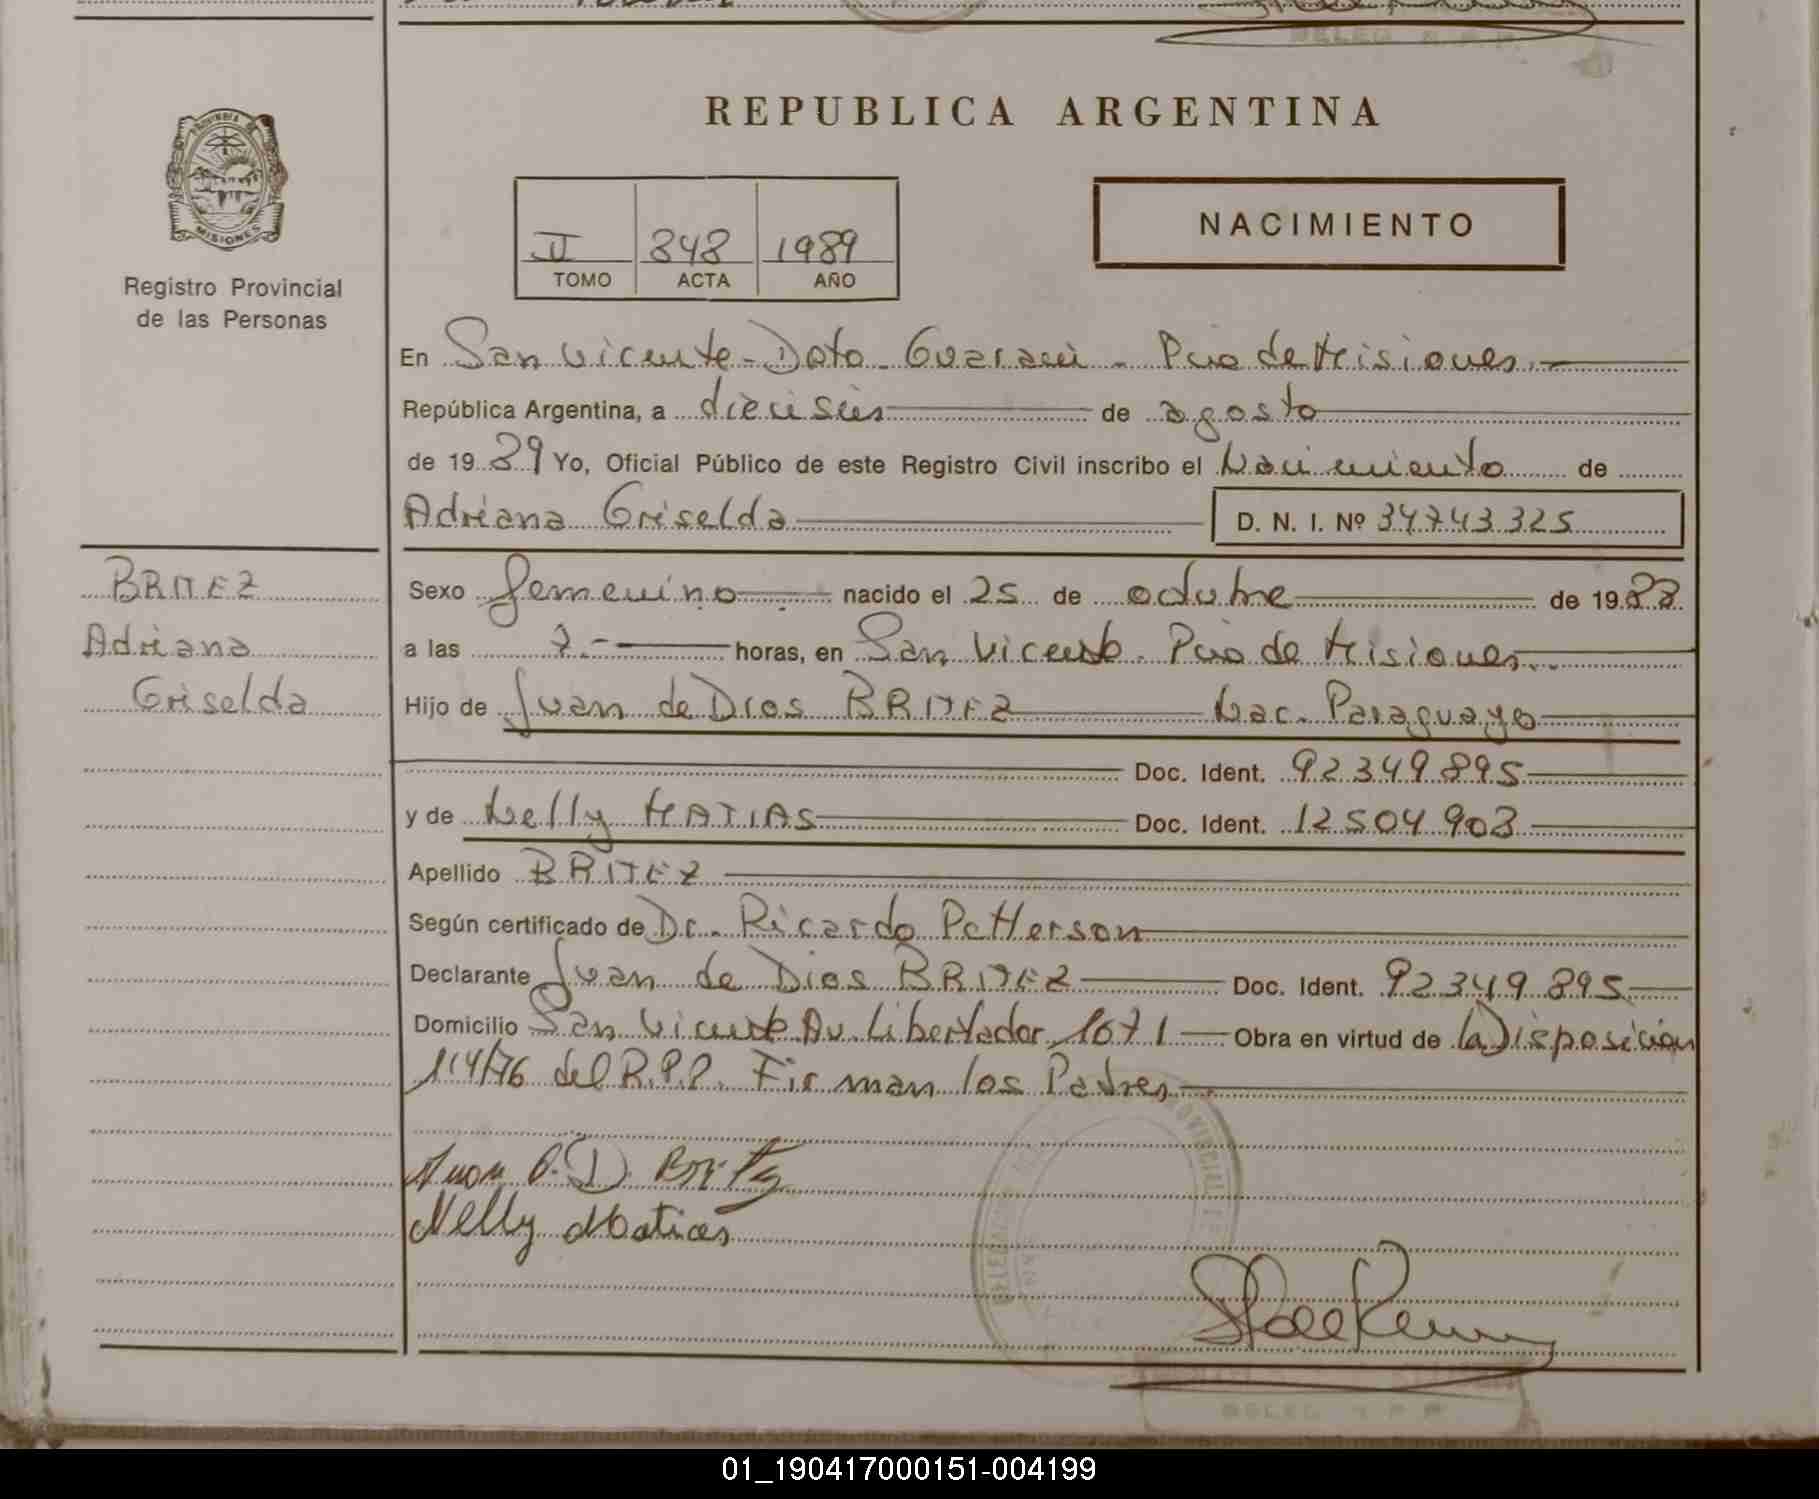 REPUBLICA ARGENTINA
PROVINCIA DE
MISIONES
Registro Provincial
de las Personas
II 848 1989
TOMO ACTA AÑO
NACIMIENTO
En San Vicente - Dpto. Guaraní - Pcia de Misiones.
República Argentina, a dieciseis de agosto
de 1989 Yo, Oficial Público de este Registro Civil inscribo el Nacimiento de
Adriana Griselda D. N. I. Nº 34743325
BRITEZ
Adriana
Griselda
Sexo femenino nacido el 25 de octubre de 1988
a las 7.- horas, en San Vicente. Pcia de Misiones.
Hijo de Juan de Dios BRITEZ Nac. Paraguayo
Doc. Ident. 92349895
y de Nelly MATIAS Doc. Ident. 12504903
Apellido BRITEZ
Según certificado de Dr. Ricardo Patterson
Declarante Juan de Dios BRITEZ Doc. Ident. 92349895
Domicilio San Vicente Av. Libertador 1071 Obra en virtud de la Disposición
114/76 del R.P.P. Firman los Padres
Juan D. D. Britez
Nelly Matias
01_190417000151-004199